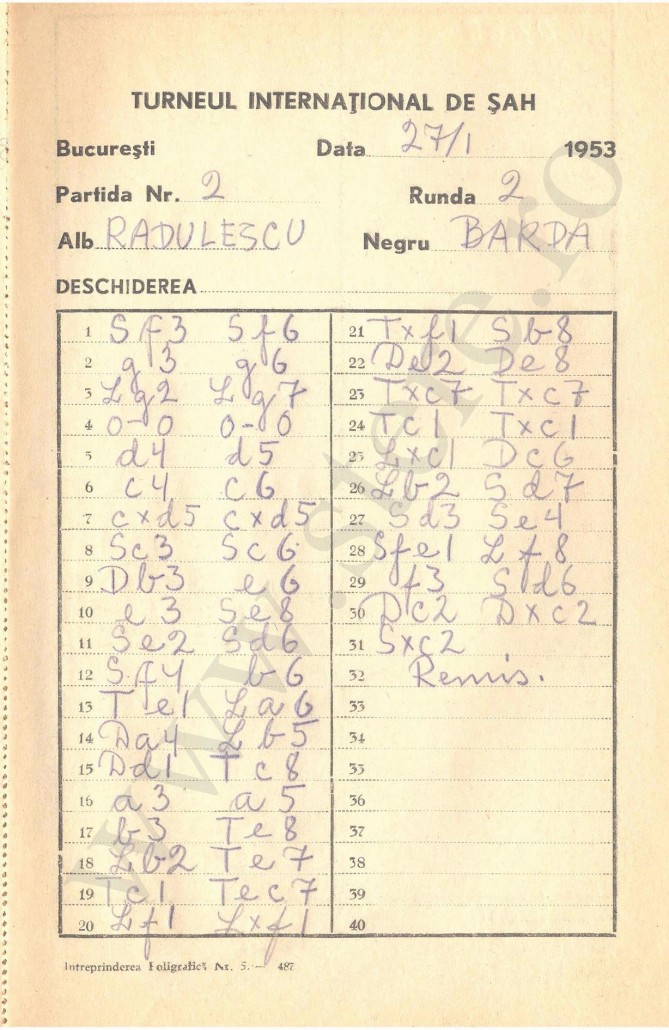 TURNEUL INTERNAȚIONAL DE ȘAH
București Data 27/1 1953
Partida Nr. 2 Runda 2
Alb RADULESCU Negru BARDA
DESCHIDEREA
1 Sf3 Sf6
2 g3 g6
3 Lg2 Lg7
4 0-0 0-0
5 d4 d5
6 c4 c6
7 cxd5 cxd5
8 Sc3 Sc6
9 Db3 e6
10 e3 Se8
11 Se2 Sd6
12 Sf4 b6
13 Te1 La6
14 Da4 Lb5
15 Dd1 Tc8
16 a3 a5
17 b3 Te8
18 Lb2 Te7
19 Tc1 Tec7
20 Lf1 Lxf1
21 Txf1 Sb8
22 De2 De8
23 Txc7 Txc7
24 Tc1 Txc1
25 Lxc1 Dc6
26 Lb2 Sd7
27 Sd3 Se4
28 Sfe1 Lf8
29 f3 Sd6
30 Dc2 Dxc2
31 Sxc2
32 Remis.
33
34
35
36
37
38
39
40
Intreprinderea Poligrafică Nr. 5. — 487
www.stere.ro